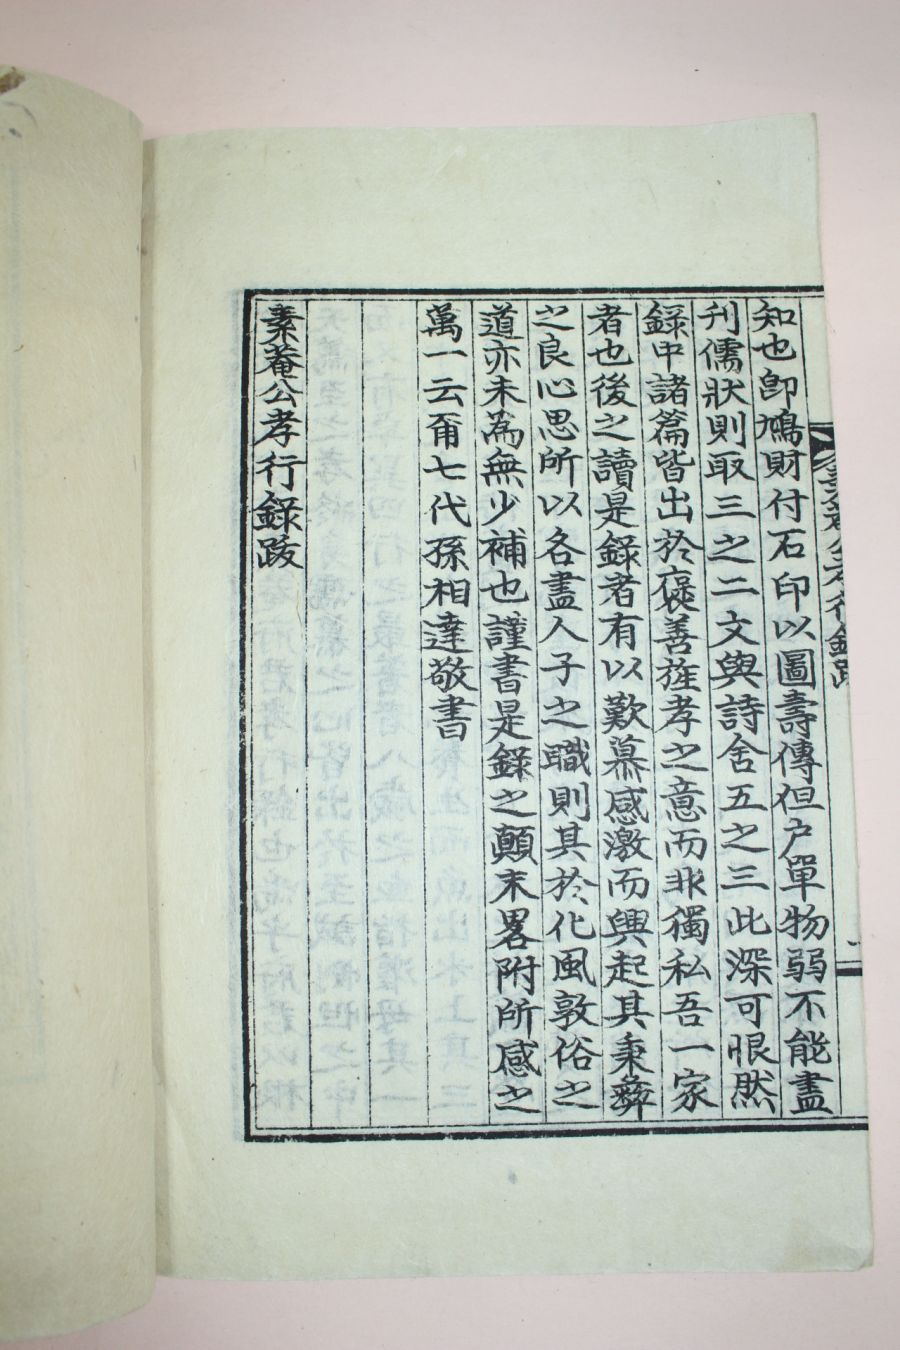 知也卽鳩財付石印以圖壽傳但户單物弱不能盡
刊儒狀則取三之二文與詩舍五之三此深可恨然
錄中諸篇皆出於褒善旌孝之意而非獨私吾一家
者也後之讀是錄者有以歎慕感激而興起其秉彝
之良心思所以各盡人子之職則其於化風敦俗之
道亦未爲無少補也謹書是錄之顛末畧附所感之
萬一云爾七代孫相達敬書
素菴公孝行錄跋